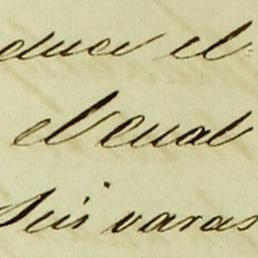 duce el
el cual
Seis varas